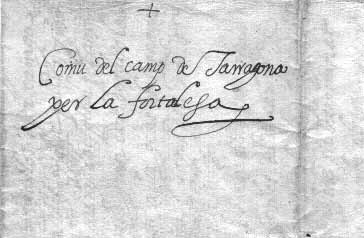 +
Comu del camp de Tarragona
per la fortalesa